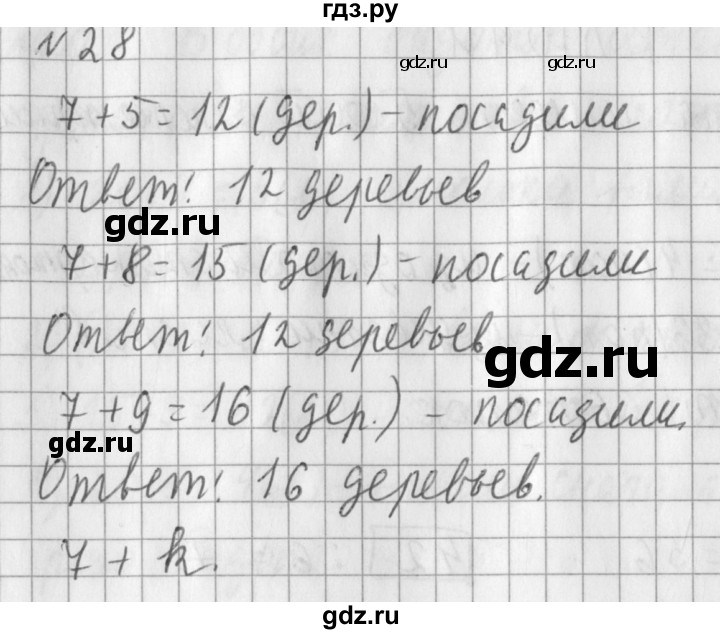 гдз.ру
№ 28
gdz.ru gdz.ru
7 + 5 = 12 (дер.) - посадили
Ответ: 12 деревьев
gdz.ru
7 + 8 = 15 (дер.) - посадили
Ответ: 12 деревьев
gdz.ru
7 + 9 = 16 (дер.) - посадили.
gdz.ru
Ответ: 16 деревьев.
7 + k.
gdz.ru